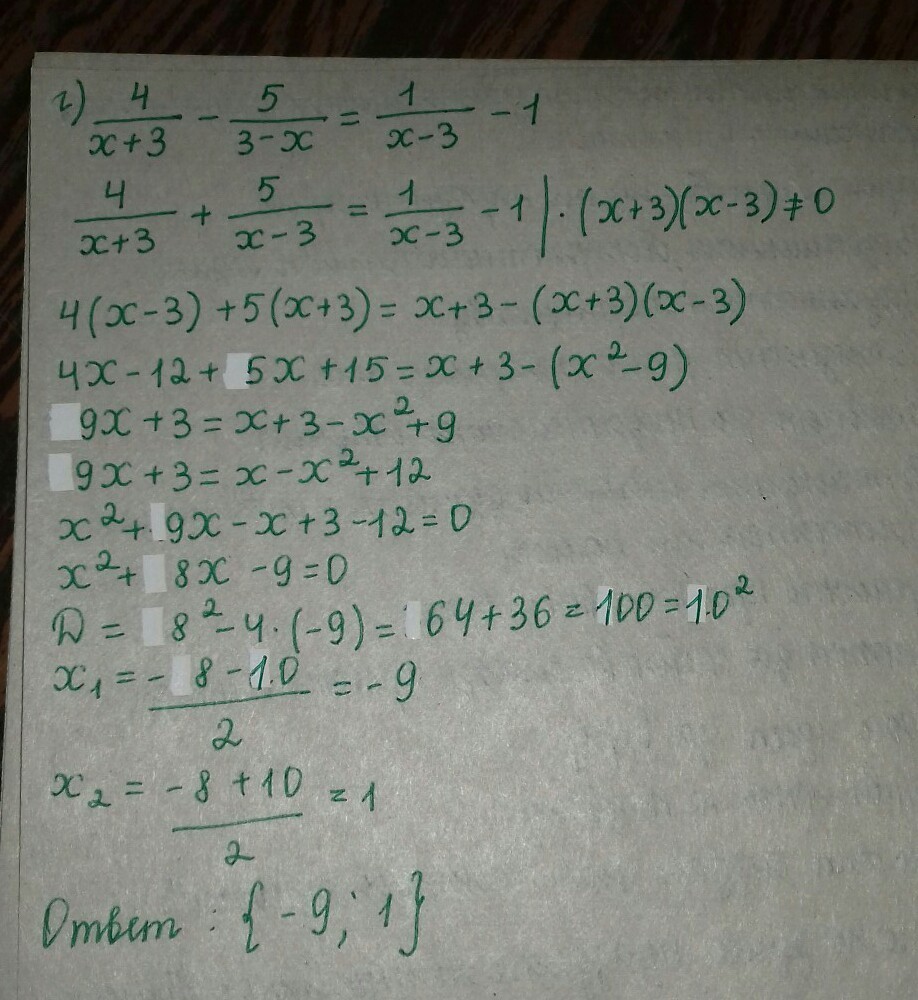 г) 4/(x+3) - 5/(3-x) = 1/(x-3) - 1
4/(x+3) + 5/(x-3) = 1/(x-3) - 1 | · (x+3)(x-3) ≠ 0
4(x-3) + 5(x+3) = x+3 - (x+3)(x-3)
4x - 12 + 5x + 15 = x + 3 - (x² - 9)
9x + 3 = x + 3 - x² + 9
9x + 3 = x - x² + 12
x² + 9x - x + 3 - 12 = 0
x² + 8x - 9 = 0
D = 8² - 4·(-9) = 64 + 36 = 100 = 10²
x₁ = (-8 - 10)/2 = -9
x₂ = (-8 + 10)/2 = 1
Ответ: {-9; 1}